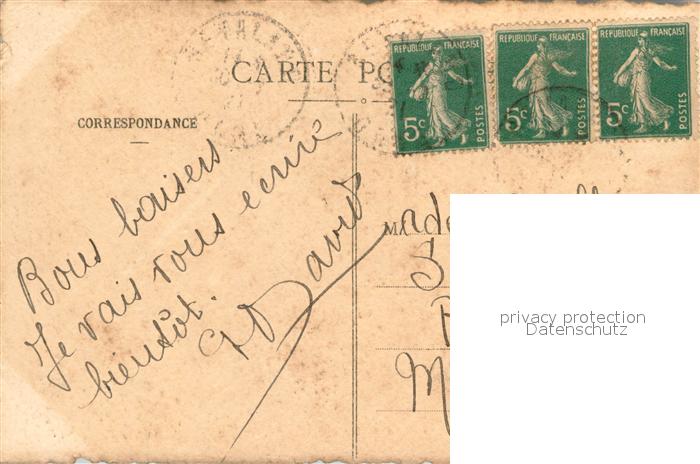 CARTE PO
REPUBLIQUE FRANÇAISE
5c
POSTES
REPUBLIQUE FRANÇAISE
5c
POSTES
REPUBLIQUE FRANÇAISE
5c
POSTES
CORRESPONDANCE
Bons baisers
Je vais vous ecrire
bientôt.
David
Made
S
M
privacy protection
Datenschutz